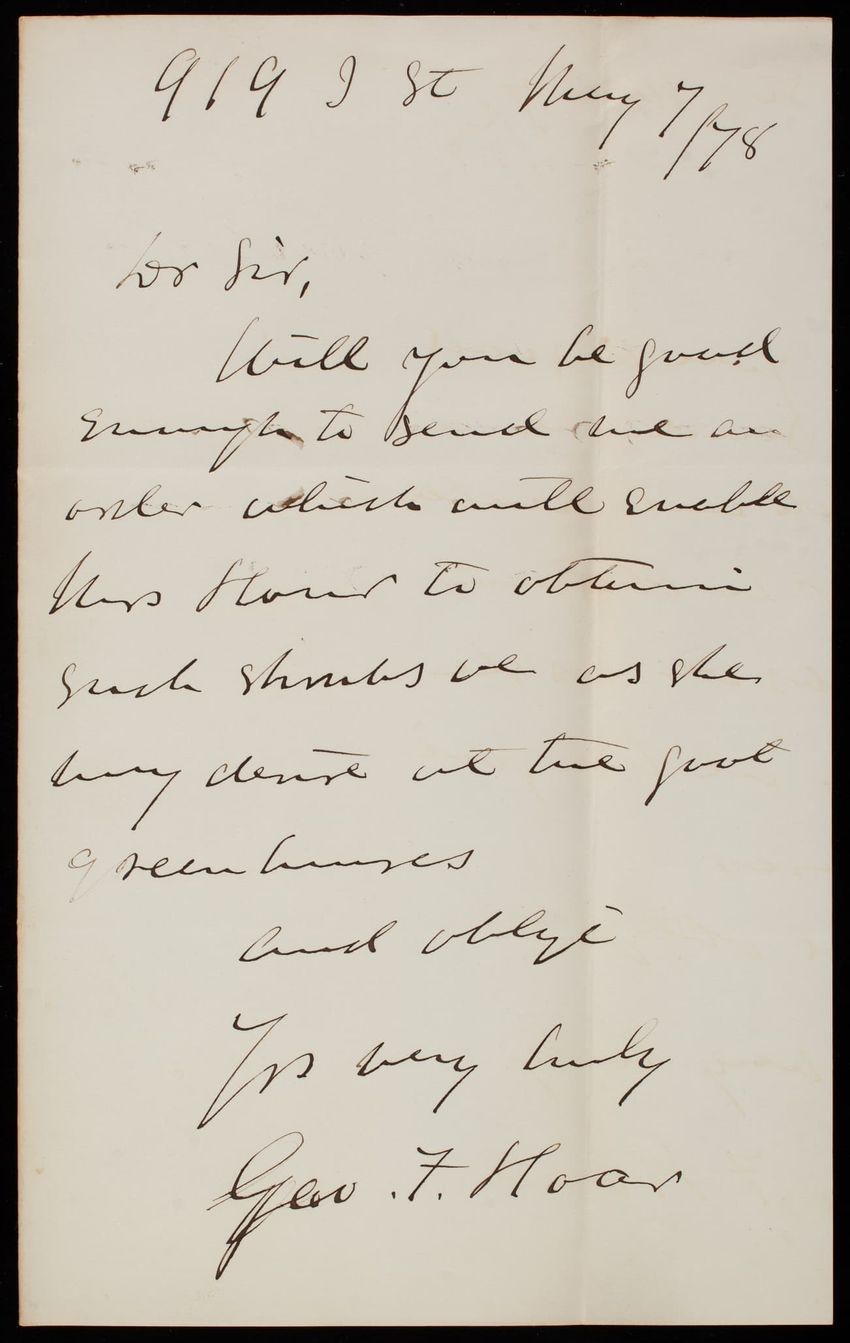 919 I St May 7/78
Dr Sir,
Will you be good
enough to send me an
order which will enable
Mrs Hoar to obtain
such shrubs &c as she
may desire at the govt
greenhouses
and oblige
Yrs very truly
Geo. F. Hoar